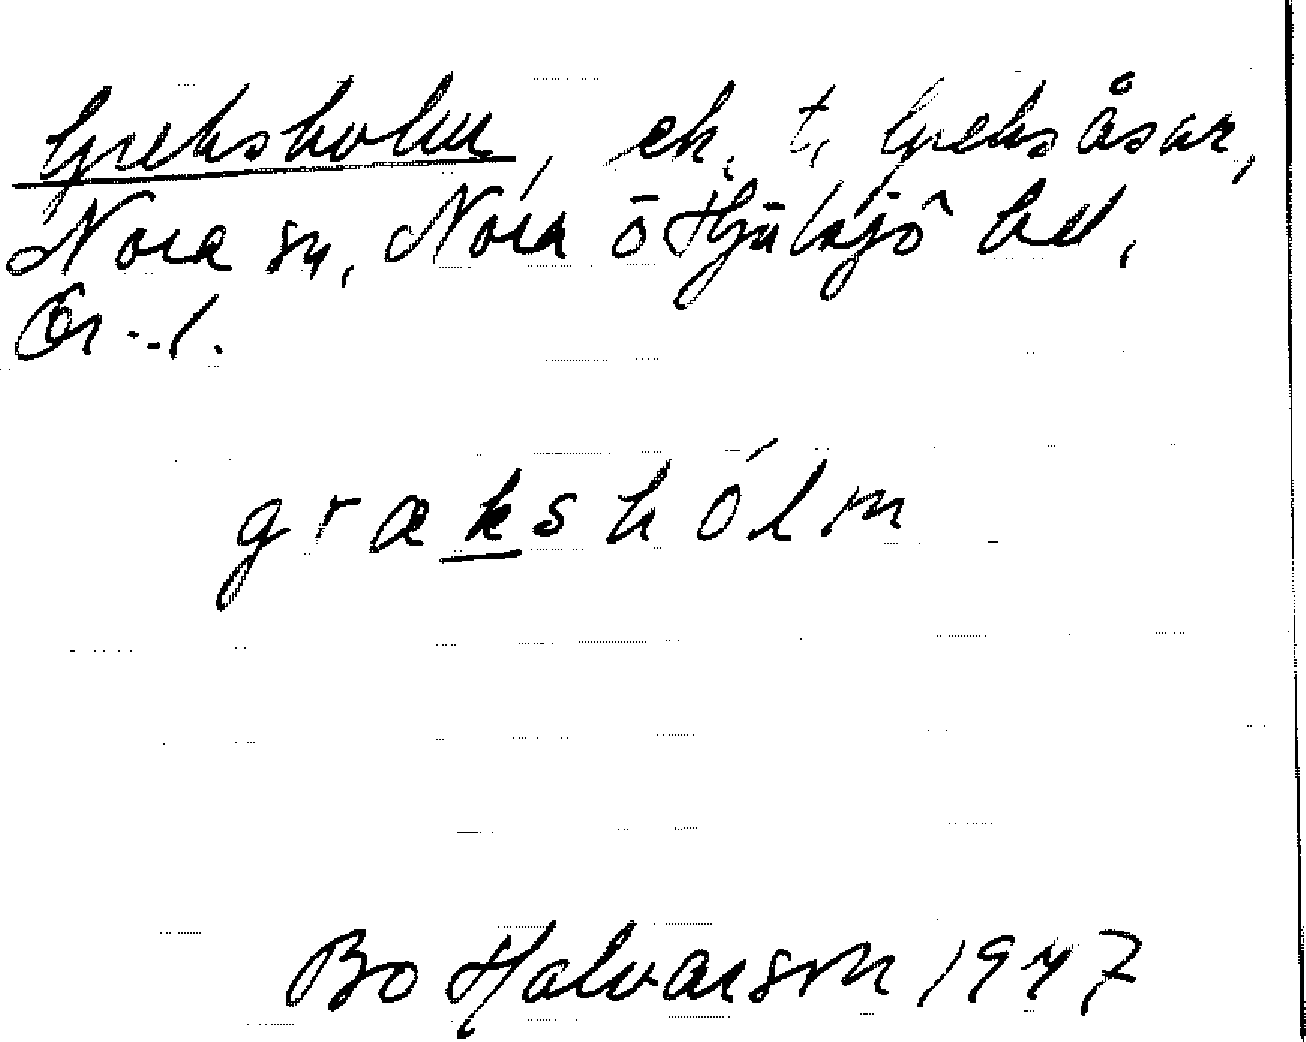 Greksholm, ek. t. Greksåsar,
Nora sn, Nora o Hjulsjö bd,
Ör. l.
grækshólm
Bo Halvarson 1947